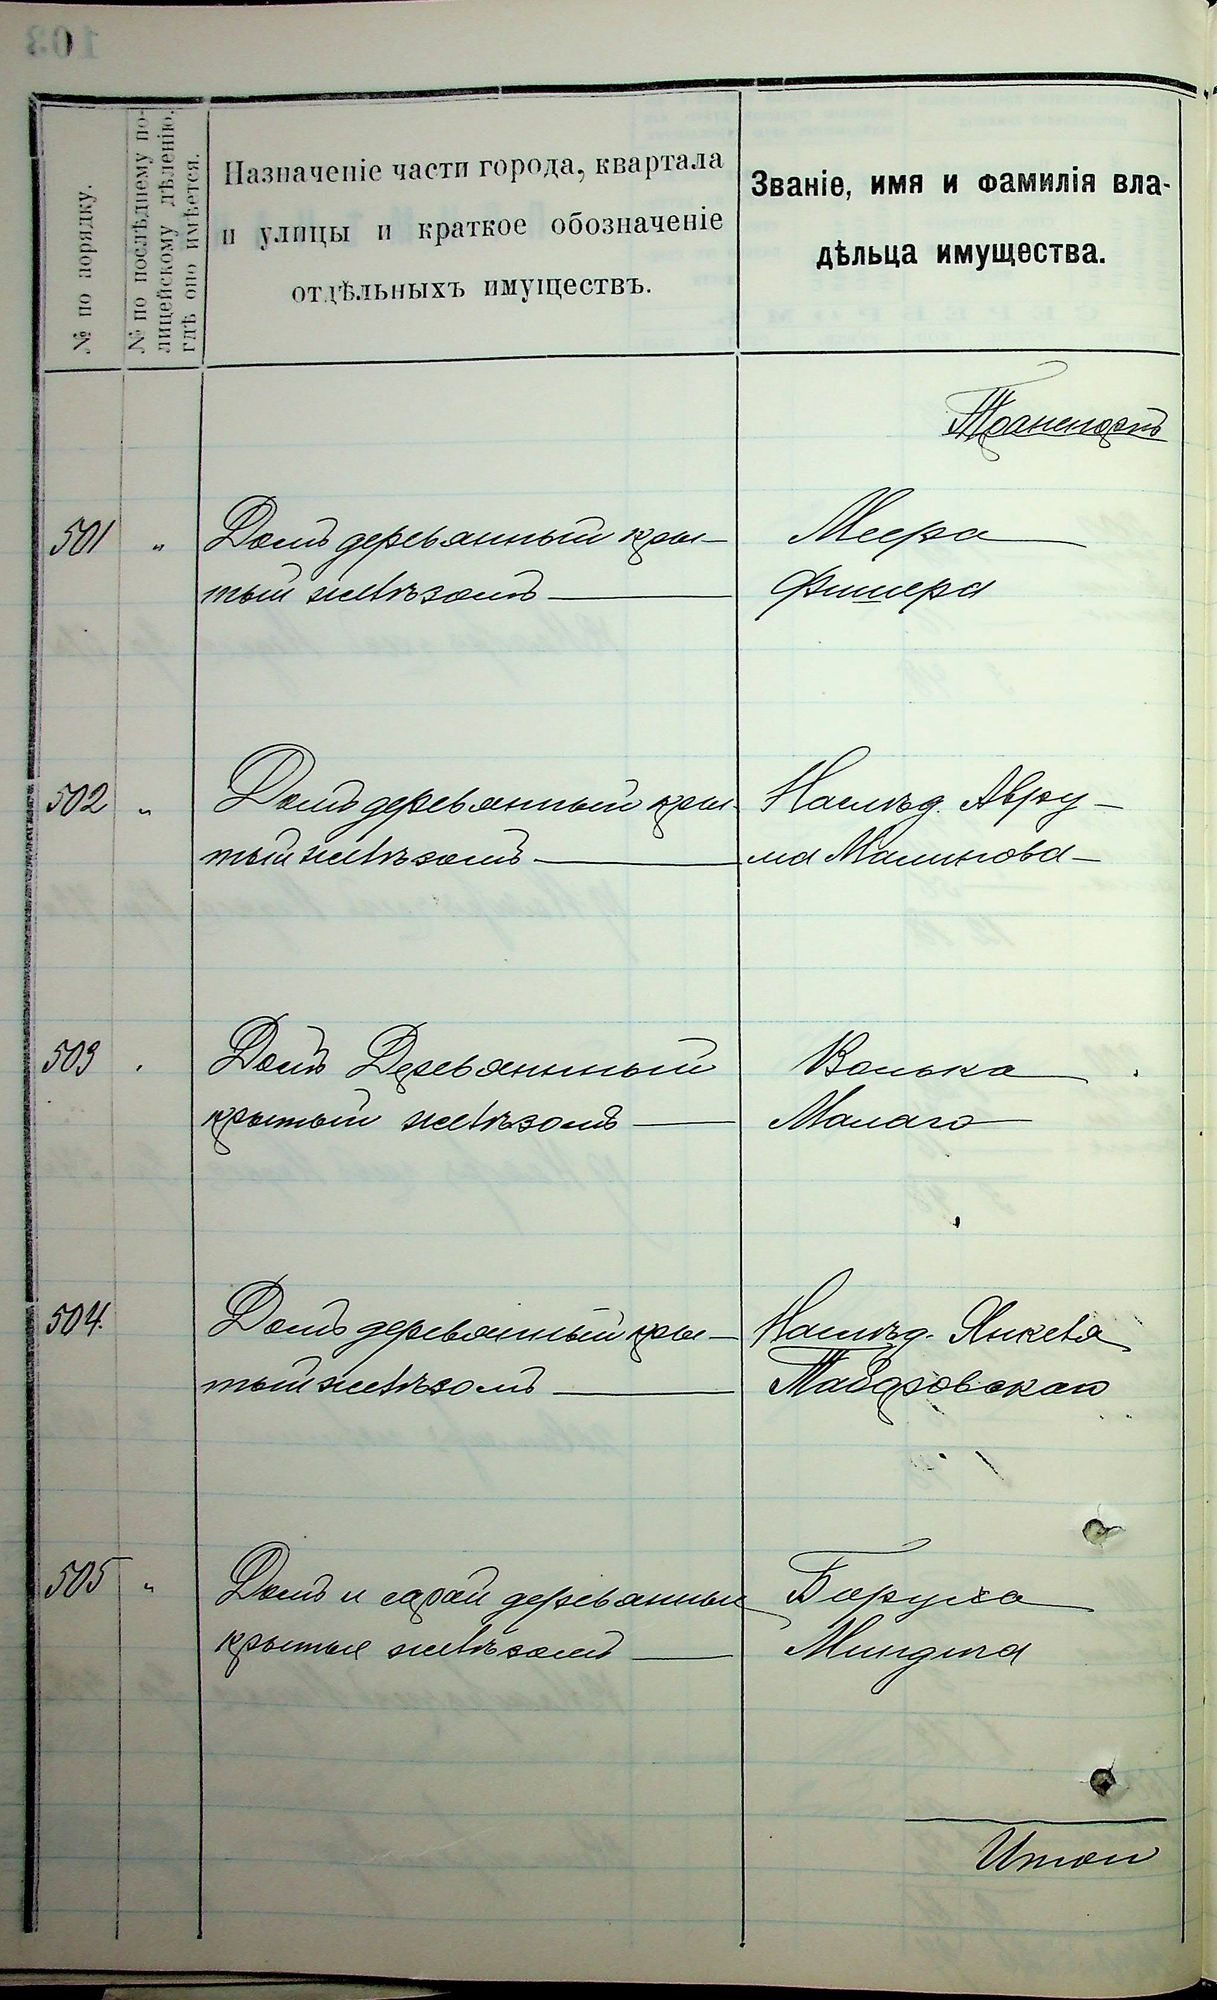 № по порядку.
№ по послѣднему по-
лицейскому дѣленію,
гдѣ оно имѣется.
Назначеніе части города, квартала
и улицы и краткое обозначеніе
отдѣльныхъ имуществъ.
Званіе, имя и фамилія вла-
дѣльца имущества.
Транспортъ
501 " Домъ деревянный кры- Меера
тый желѣзомъ Фишера
502 " Домъ деревянный кры- Наслѣд. Авру-
тый желѣзомъ ма Малинова
503 Домъ Деревянный Волька
крытый желѣзомъ Малаго
504. Домъ деревянный кры- Наслѣд. Янкеля
тый желѣзомъ
505 " Домъ и сарай деревянные Боруха
крытые желѣзомъ Миндича
Итого